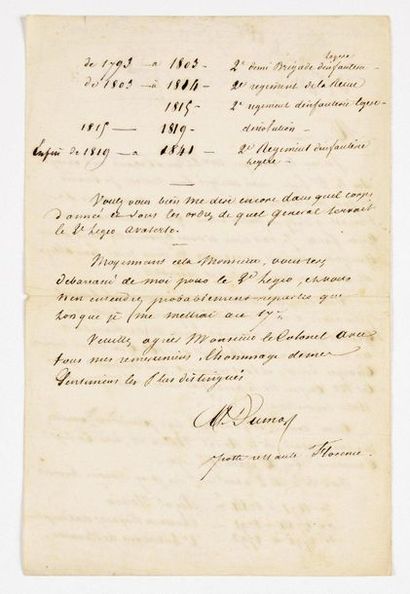 de 1793 à 1803 2e demi Brigade d'infanterie légere
de 1803 à 1814 2e regiment de la
1815 2e regiment d'infanterie légere
1815 — 1819 — dissolution —
Enfin de 1819 — à 1841 2e Regiment d'infanterie légere —
Voulez vous bien me dire encore dans quel corps
d'armée et sous les ordres de quel general servait
le 2e leger
Moyennant cela Monsieur, vous serez
debarrassé de moi pour le 2e leger, et vous
n'en entendrez probablement reparler que
lorsque je me mettrai au 17e
Veuillez agréer Monsieur le Colonel avec
tous mes remerciemens l'hommage de mes
Sentimens les plus distingués
Al. Dumas
poste restante Florence.